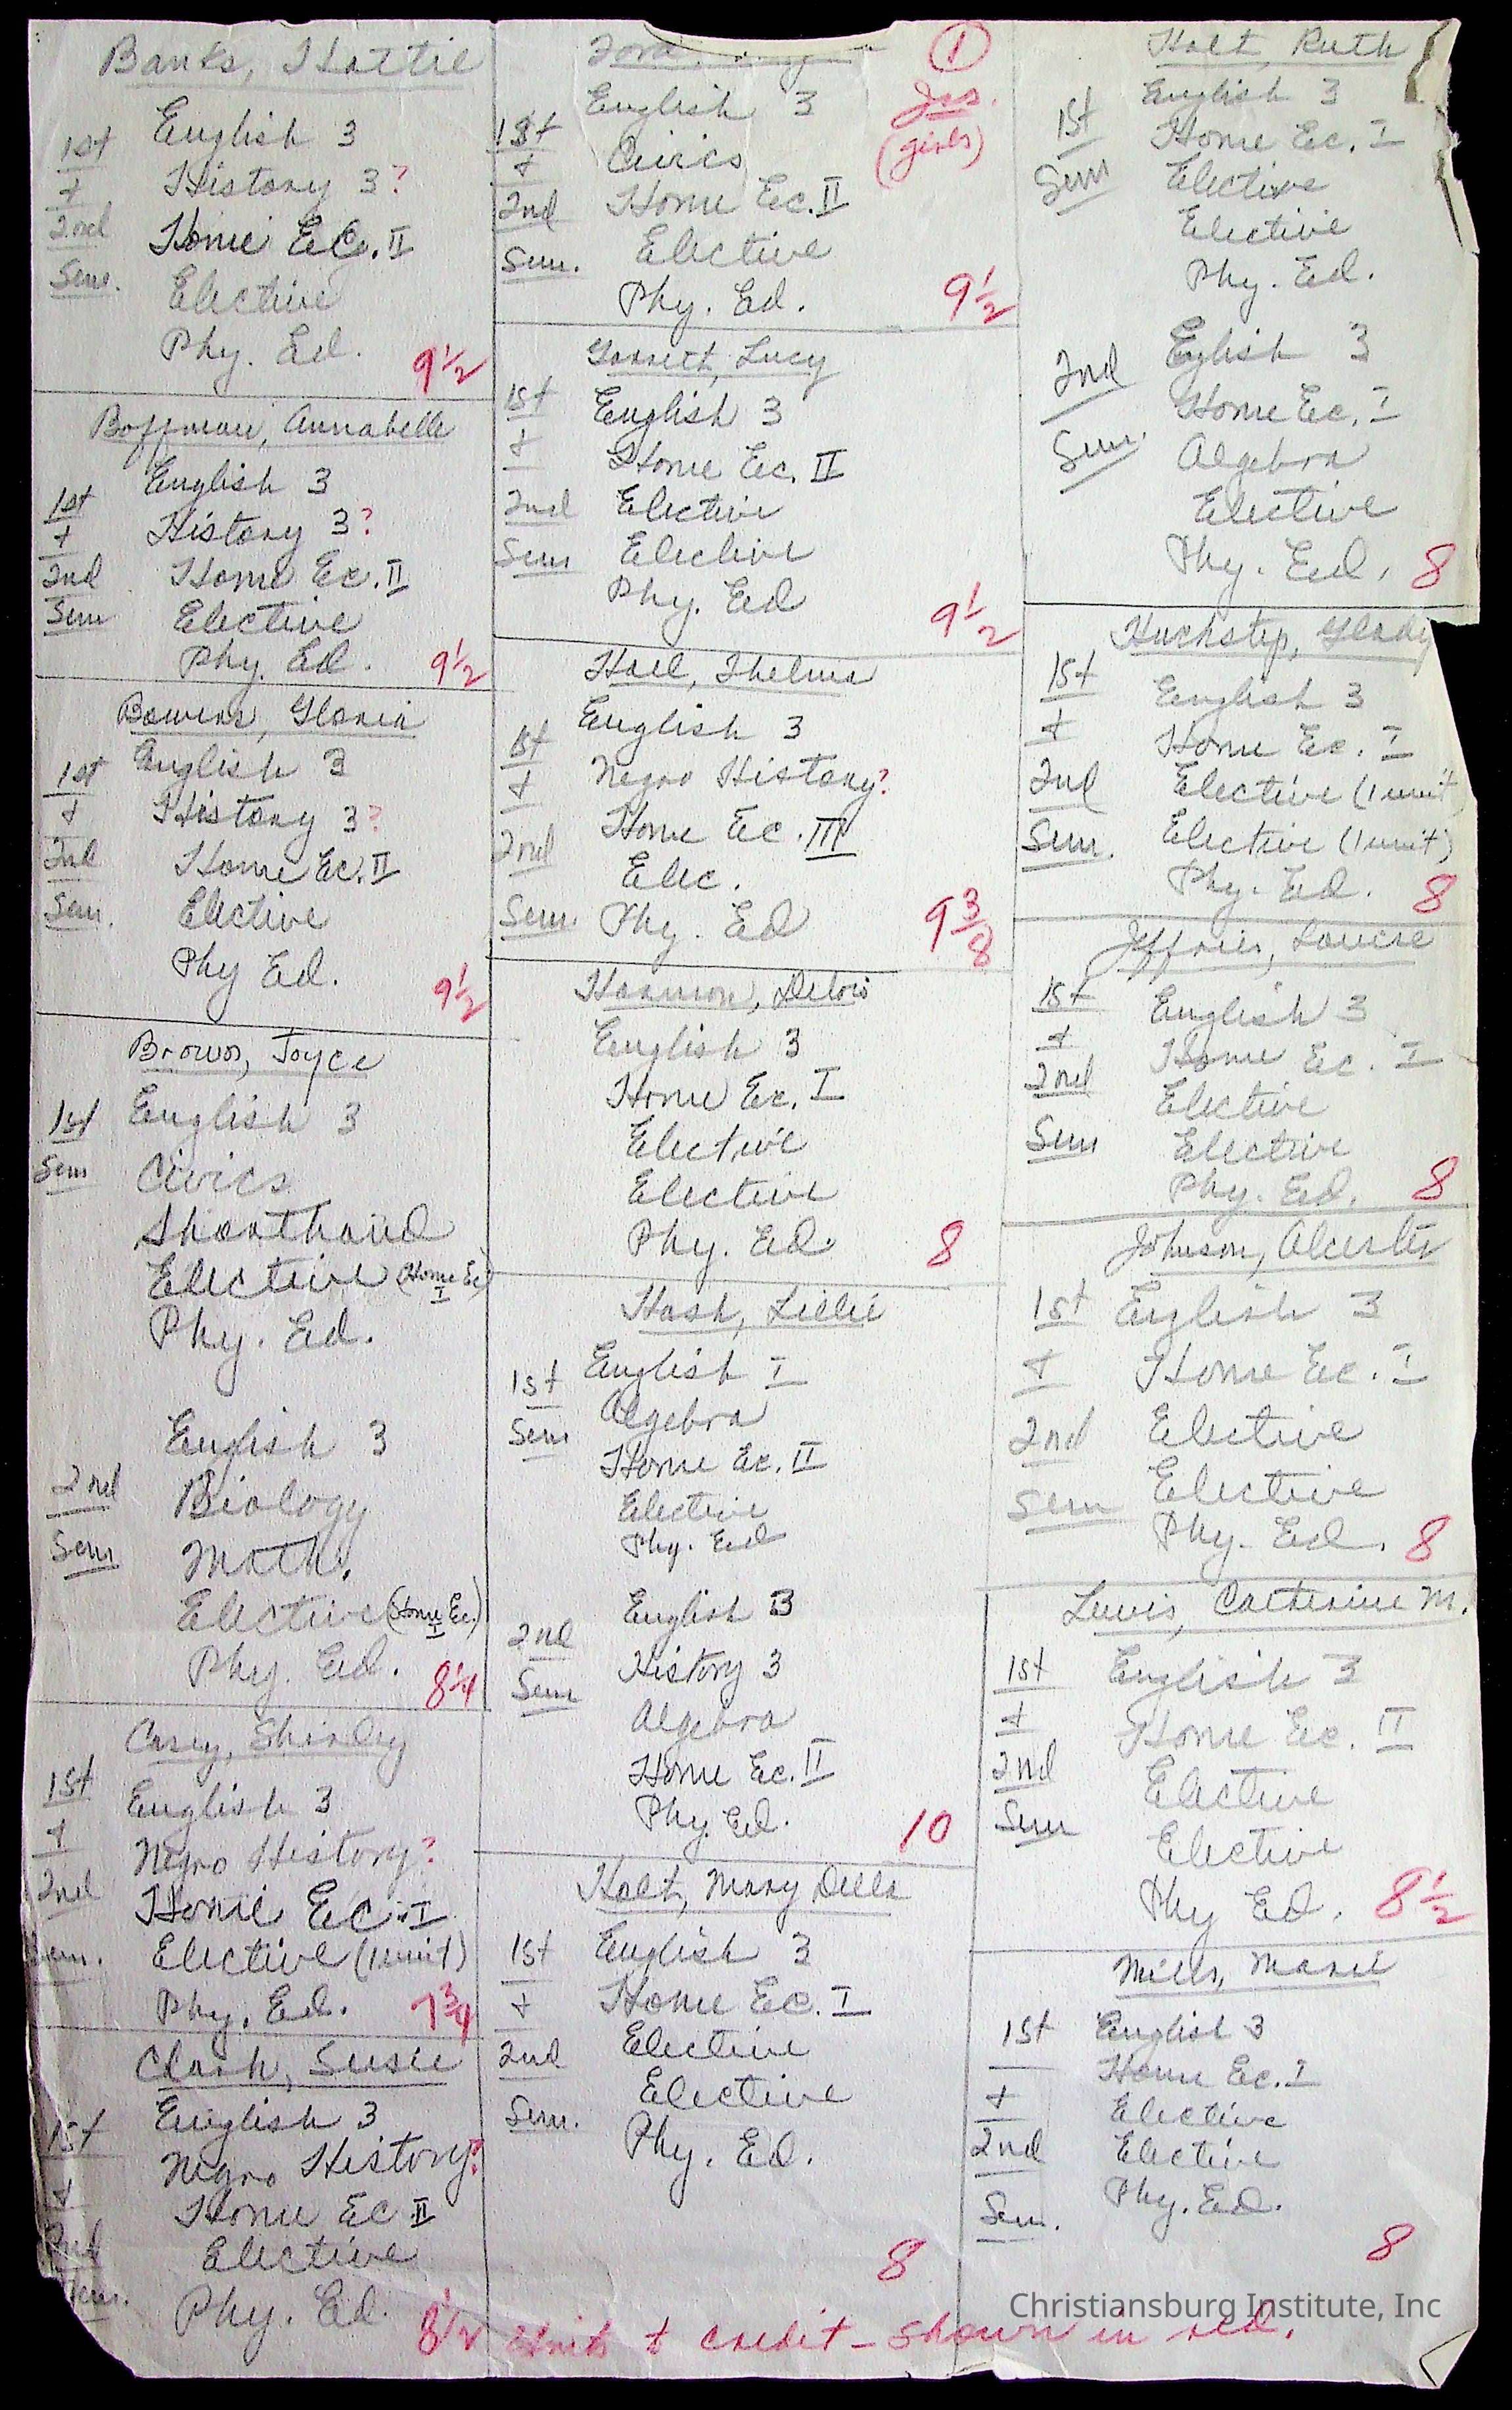 Banks, Hattie
English 3
1st
History 3?
+
2nd
Home Ec. II
Sem.
Elective
Phy. Ed.
9 1/2
Boffman, Annabelle
English 3
1st
History 3?
+
2nd
Home Ec. II
Sem
Elective
Phy. Ed.
9 1/2
Bowens, Gloria
English 3
1st
+
History 3?
2nd
Home Ec. II
Sem.
Elective
Phy Ed.
9 1/2
Brown, Joyce
1st
English 3
Sem
Civics
Shorthand
Elective (Home Ec I)
Phy. Ed.
English 3
2nd
Biology
Sem
Math.
Elective (Home Ec. I)
Phy. Ed.
8 1/4
Casey, Shirley
1st
English 3
+
Negro History?
2nd
Home Ec. I
Sem.
Elective (1 unit)
Phy. Ed.
7 3/4
Clark, Susie
English 3
1st
Negro History?
+
Home Ec II
2nd
Elective
Sem.
Phy. Ed.
8 1/2
Ford,
① Jrs. (girls)
English 3
1st
Civics
+
2nd
Home Ec. II
Sem.
Elective
Phy. Ed.
9 1/2
Garrett, Lucy
1st
English 3
+
Home Ec. II
2nd
Elective
Sem
Elective
Phy. Ed
9 1/2
Hall, Thelma
English 3
1st
+
Negro History?
Home Ec. III
2nd
Elec.
Sem.
Phy. Ed
9 3/8
Harmon, Delois
English 3
Home Ec. I
Elective
Elective
Phy. Ed.
8
Hash, Lillie
English I
1st
Algebra
Sem
Home Ec. II
Elective
Phy. Ed
English 3
2nd
History 3
Sem
Algebra
Home Ec. II
Phy. Ed.
10
Holt, Mary Della
1st
English 3
+
Home Ec. I
2nd
Elective
Elective
Sem.
Phy. Ed.
8
Holt, Ruth
English 3
1st
Home Ec. I
Sem
Elective
Elective
Phy. Ed.
English 3
2nd
Home Ec. I
Sem.
Algebra
Elective
Phy. Ed.
8
Huckstep, Glady
1st
English 3
+
Home Ec. I
2nd
Elective (1 unit
Sem.
Elective (1 unit)
Phy. Ed.
8
Jeffries,
1st
English 3
+
Home Ec. I
2nd
Elective
Sem
Elective
Phy. Ed.
8
Johnson,
1st
English 3
+
Home Ec. I
2nd
Elective
Sem
Elective
Phy. Ed.
8
Lewis, Catherine M.
1st
English 3
+
Home Ec. II
2nd
Elective
Sem
Elective
Phy Ed.
8 1/2
Mills, Marie
1st
English 3
Home Ec. I
+
Elective
2nd
Elective
Phy. Ed.
Sem.
8
Units + credit - shown in red.
Christiansburg Institute, Inc